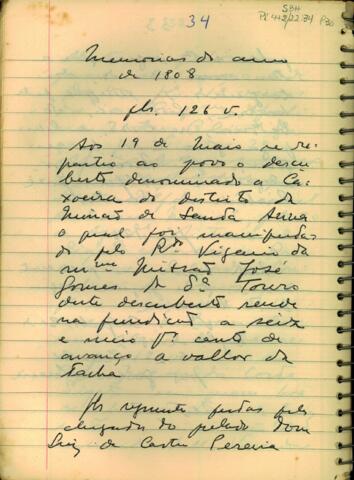 34
SBH
Pi 442/22:34 P30
Memorias do anno
de 1808
fls. 126 v.
Aos 19 de Maio se re-
partio ao povo o descu-
berto denominado a Ca-
xoeira do distrito das
Minas de Santa Anna
o qual foi manifesta-
do pelo Rdo Vigario da
mma José
Gomes da Sa
este descuberto rende
na fundicam a seis
e meio pr cento de
avanço a vallor da
tacha
fls seguinte pela
chegada do dom
Luiz de Castro Pereira